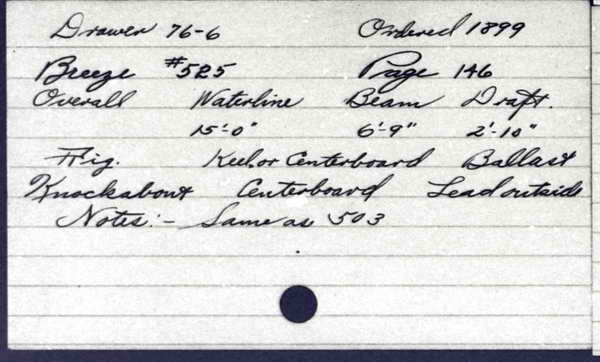 Drawer 76-6 Ordered 1899
Breeze #525 Page 146
Overall Waterline Beam Draft.
15'-0" 6'-9" 2'-10"
Rig. Keel or Centerboard Ballast
Knockabout Centerboard Lead outside
Notes:- Same as 503